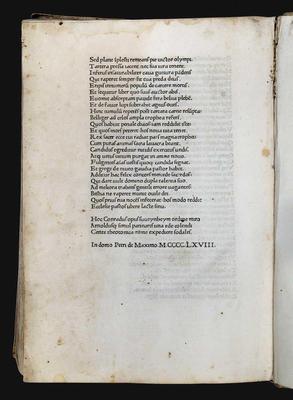 Sed plane remeans pie uictor olympi
Tartara pressa iacent nec sua iura tenent.
Inferus insaturabiliter caua guttura pādens
Qui raperet semper fit tua preda deus.
Eripis innumerū populū de carcere mortis
Et sequitur liber quo suus auctor abit.
Euomit absorptam pauide fera belua plebē
Et de fauce lupi subtrahit agnus oues.
Hinc tumulū repetēs post tartara carne resūpta
Belliger ad celos ampla trophea refers.
Quos habuit penale chaos iam reddidit iste
Et quos mors peteret hos noua uita tenet.
Rex sacer ecce tui radiat pars magna trophei
Cum puras animas sancta lauacra beant.
Candidus egreditur nitidis exercitus undis.
Atq; uetus uitium purgat in amne nouo.
Fulgentes aīas uestis quoq; candida signat.
Et grege de niueo gaudia pastor habet.
Additur hac felix concors mercede sacerdos
Qui dare uult domino dupla talenta suo.
Ad meliora trahens gentili errore uagantes
Bestia ne raperet munit ouile dei.
Quos prius eua nocēs infecerat hos modo reddit
Ecclesie pastos ubere lacte sinu.
Hoc Conradus opus suueynheym ordine miro
Arnoldusq; simul pannarts una ede colendi
Gente theotonica rome expediere sodales.
In domo Petri de Maximo. M.CCCC.LXVIII.